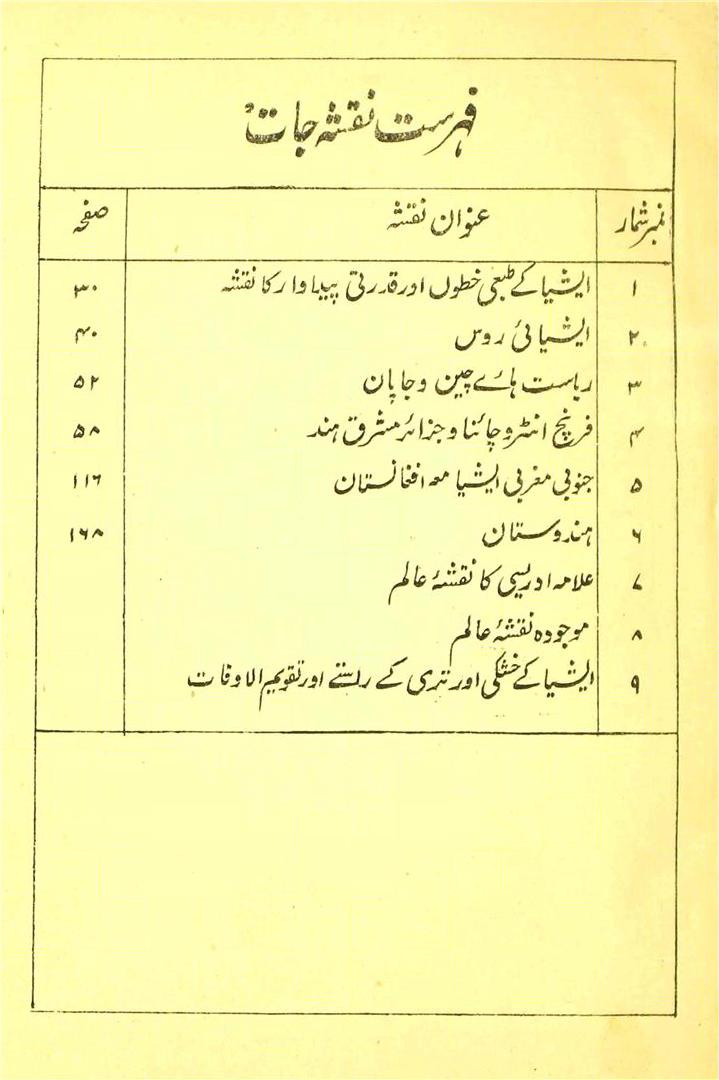 فہرست نقشہ جات
نمبر شمار عنوان نقشہ صفحہ
۱ ایشیا کے طبعی خطوں اور قدرتی پیداوار کا نقشہ ۳۰
۲ ایشیائی روس ۴۰
۳ ریاست ہائے چین و جاپان ۵۲
۴ فرنچ انڈو چائنا و جزائر مشرق ہند ۵۸
۵ جنوبی مغربی ایشیا معہ افغانستان ۱۱۶
۶ ہندوستان ۱۶۸
۷ علامہ ادریسی کا نقشۂ عالم
۸ موجودہ نقشۂ عالم
۹ ایشیا کے خشکی اور تری کے راستے اور تقویم الاوقات